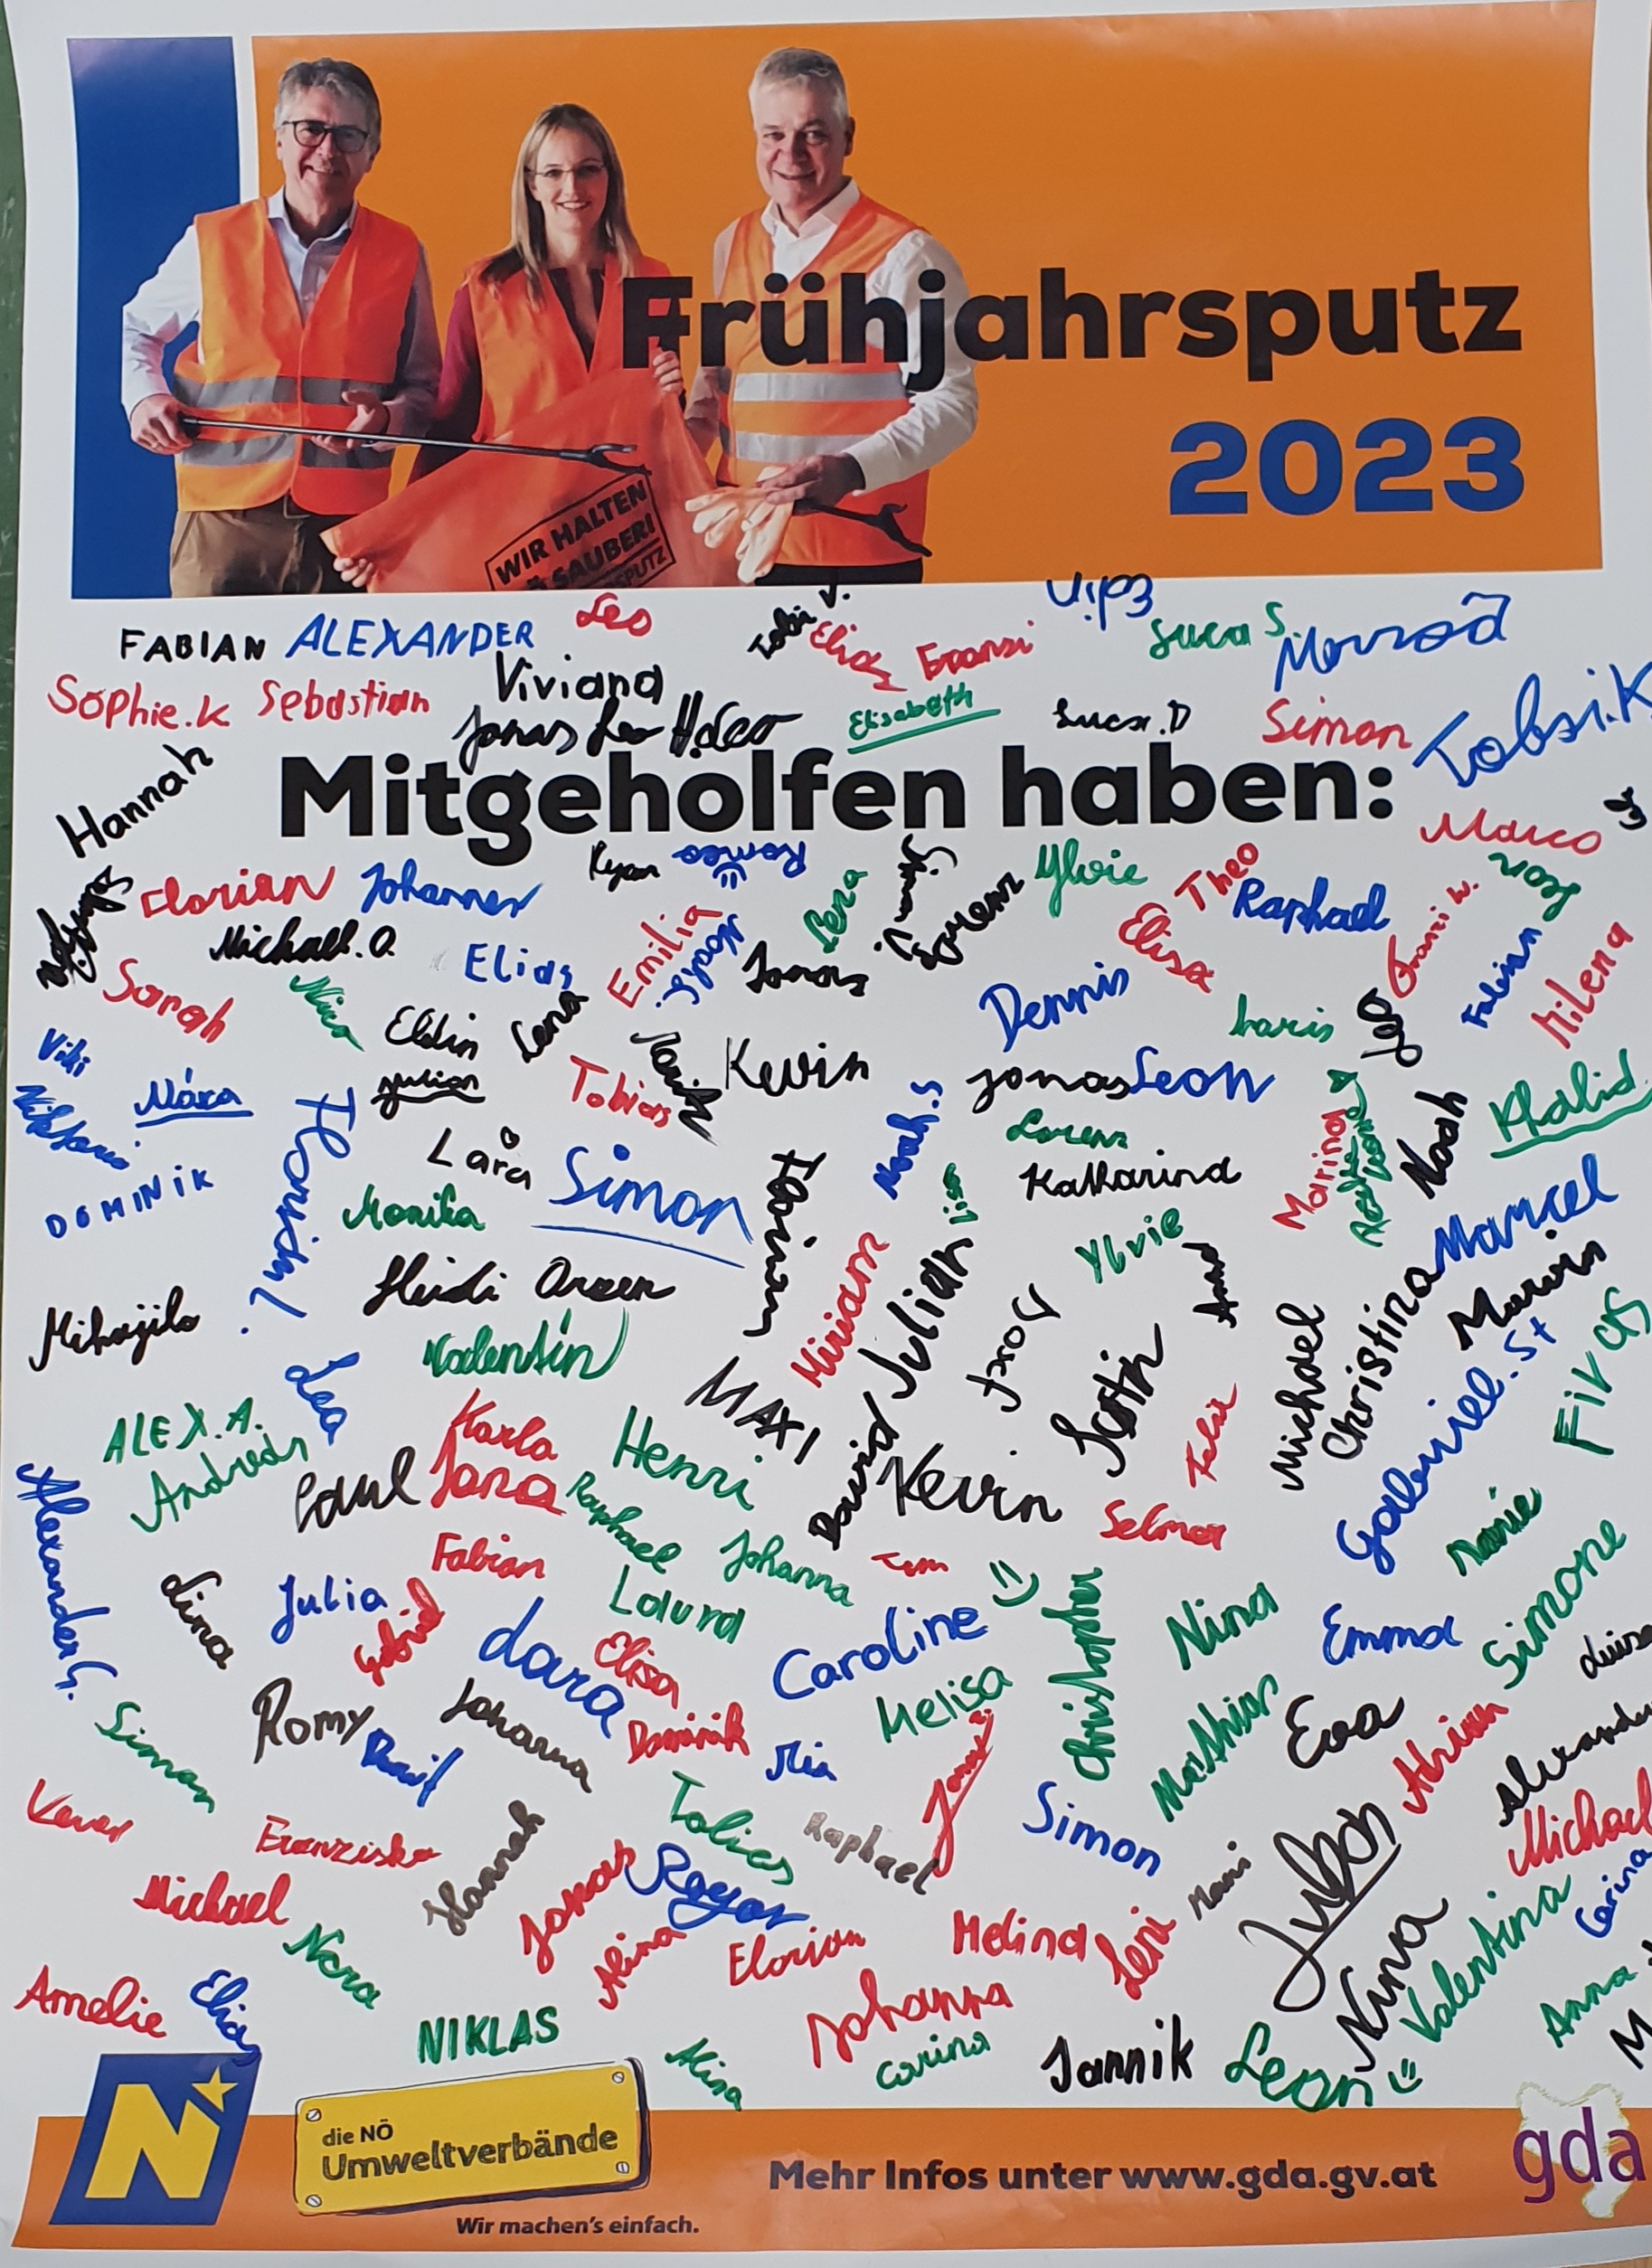 Frühjahrsputz
2023
WIR HALTEN
SAUBER!
SPUTZ
FABIAN ALEXANDER Leo
Elias Franzi Edin Luca S
Sophie.K Sebastian Viviana
Jonas Leo Elisabeth Luca.D Simon Tobsi.K
Hannah
Mitgeholfen haben:
Marco
Florian Johannes Ryan Romeo Lena Ylvie Theo Raphael Leon
Michael.O. Elias Emilia Jonas Elisa Franzi W.
Sarah Nico Eldin Lena Dennis Laris Leo Fabian Milena
Viki Julian Tobias Kevin Jonas Leon
Lorenz Marina Noah Khalid
Lara Noah.S Katharina
DOMINIK Monika Simon Lisa
Florish! Fabian Ylvie Marcel
Heidi Arsen Miriam Julian Anna
Mihajilo Valentin Michael Christina Marvin
Lea MAXI Justin Firas
ALEX.A. Karla Henri David Felix Gabriel.St
Andreas Paul Jana Raphael Kevin Selma
Alexander Fabian Johanna Tim Marie
Lina Julia Laura Christopher Nina Emma Simone
Gabriel Lara Elisa Caroline Luisa
Simon Romy Johanna Dominik Melisa Mathias Eva
David Mia Jonas Alexander
Tobias Simon Michael
Franziska Hannah Raphael
Michael Jonas Carina
Nora Alina Florian Melina Leni Valentina
Amelie Elias Johanna Anna
NIKLAS Alina Carina Jannik Leon
N
die NÖ
Umweltverbände
Wir machen's einfach.
Mehr Infos unter www.gda.gv.at
gda